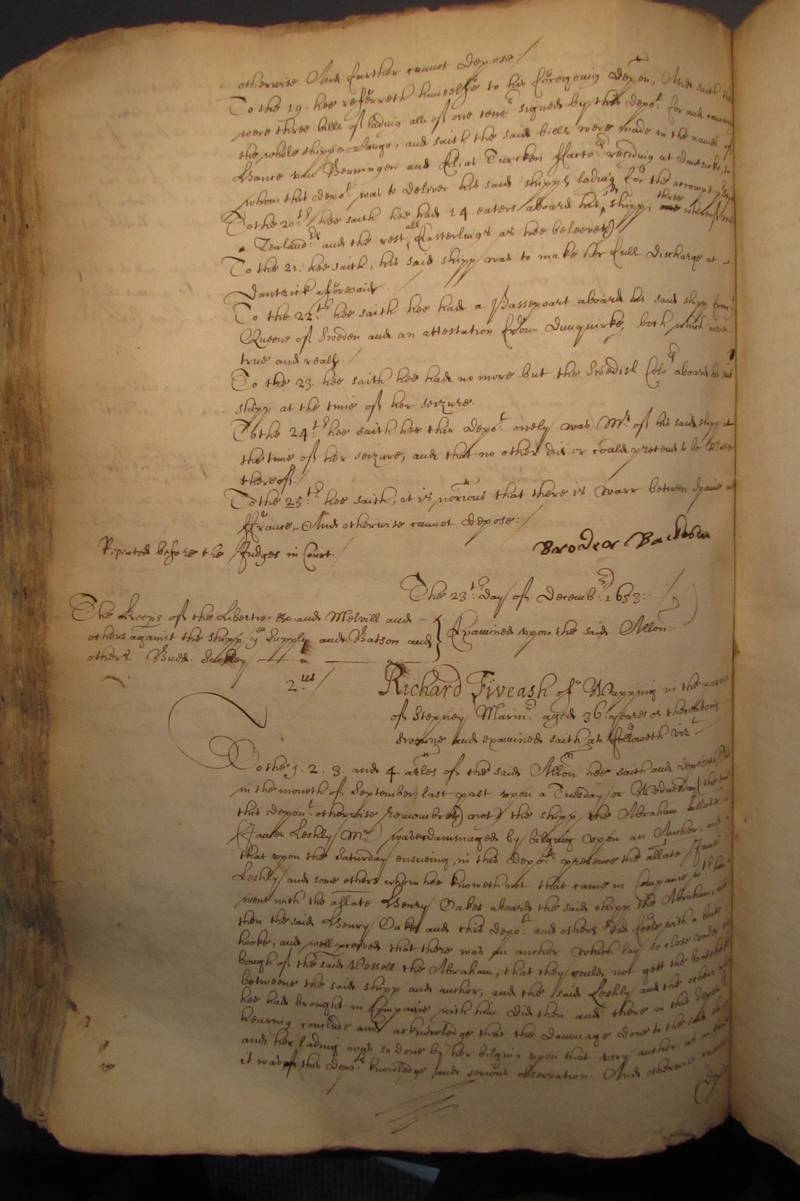 otherwise And further cannot depose /
To the 19. hee referreth himselfe to his foregoing depon, And saith there
were three bills of lading all of one tenor signed by this depot for and concerning
the whole shipps Cargo, and saith the said bills were made in the names of
Hance van Beuningen and residing at Dantzick, to
whom this depot was to deliver his said shipps lading for the accompt
To the 20th hee saith hee had 14 eaters aboard his sd shipp, three whereof were
Zealand:rs and the rest all Easterlings as hee beleeveth
To the 21. hee saith, his said shipp was to make her full discharge at
Dantzick aforesaid.
To the 22th hee saith hee had a Passeport aboard his said shipp from the
Queene of Sweden and an attestation from Dunquirke, both which were
true and reall. /
To the 23 hee saith hee had no more but the Swedish Colrs aboard his said
shipp at the time of her seizure.
To the 24.th hee saith hee this depot onely was Mr of his said shipp at
the time of her seizure, and that no other did or could pretend to be Master
thereof. /
To the 25.th hee saith, it is notorious that there is warr betweene Spaine and
ffrance, And otherwise cannot depose:
Repeated before the Judges in Court. /
Broder Backsen
The 23.th day of Decemb:r 1653. /
The Keeps of the Libertie &c. and Melvill and
others against the shipp ye Supply and Batson and
others. Budd. Suckley
Examined upon the said Allon.
2.us /
Richard Fiveash of Wapping in the parish
of Stepney Marinr aged 36 yeares or thereabouts
sworne and examined saith as followeth vizt
To the 1. 2. 3. and 4 arles of the said Allon hee saith and deposeth that
in the moneth of September last past upon a Tuesday or Wednesday (the time
this deponent otherwise remembreth not) the shipp the Abraham arlate
(Jacob Leshly Mr) was dammaged by bilging upon an Anchor: and
that upon the Saturday ensueing, in this depots presence the arlate Jacob
Leshly and some others whom hee knoweth not that came in Companie with him
went with the arlate Henry Oakes aboard the said shipp the Abraham, and
then the said Henry Oakes and this depot and others did feele with a boate
hooke, and well preived that there was an anchor which lay so close under the
bough of the said Vessell the Abraham, that they could not gett the boatehooke
betweene the said shipp and anchor, and the said Leshly and the others which
hee had brought in Companie with him did then and there in this depots
hearing conclude and acknowledge that the dammage done to the said shipp
and her lading was so done by her bilging upon that very anchor, as
it was of this depots knowledge and serious observation. And otherwise cannot
depose